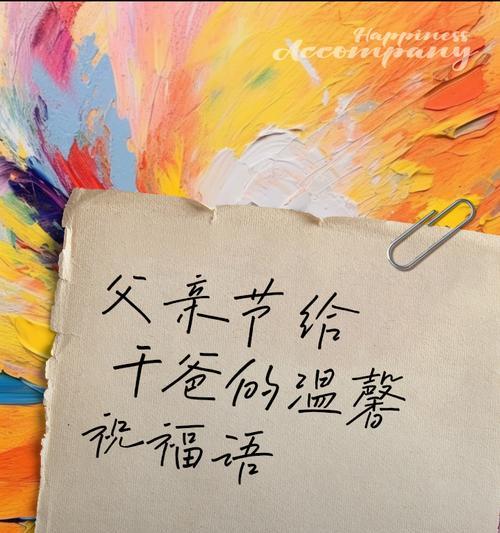 Happiness
Accompany
父亲节给
干爸的温馨
祝福语